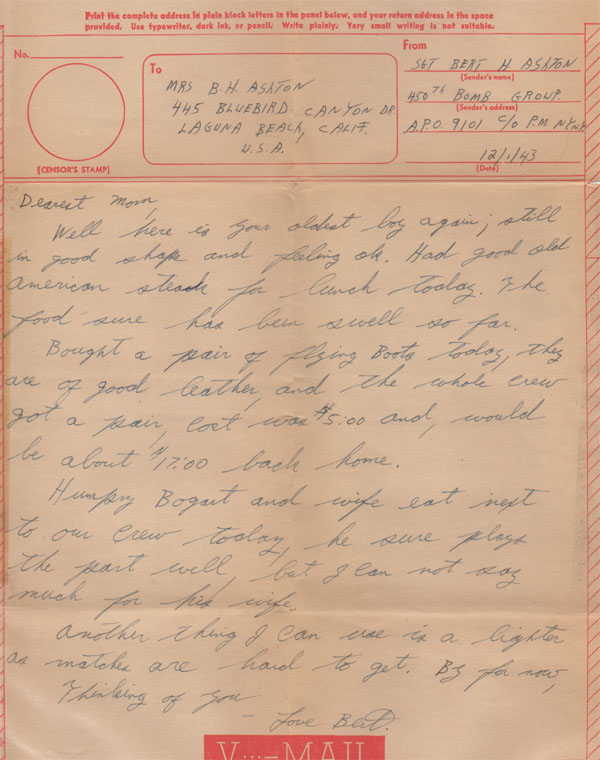 Print the complete address in plain block letters in the panel below, and your return address in the space
provided. Use typewriter, dark ink, or pencil. Write plainly. Very small writing is not suitable.
No.
To
MRS B.H. ASHTON
445 BLUEBIRD CANYON DR.
LAGUNA BEACH, CALIF.
U.S.A.
[CENSOR'S STAMP]
From
SGT BERT H. ASHTON
(Sender's name)
450TH BOMB GROUP
(Sender's address)
A.P.O. 9101 C/O P.M. N.Y. N.Y.
12/1/43
(Date)
Dearest Mom,
Well here is your oldest boy again; still
in good shape and feeling ok. Had good old
American steak for lunch today. The
food sure has been swell so far.
Bought a pair of flying Boots today, they
are of good leather, and the whole crew
got a pair, cost was $5:00 and, would
be about $17:00 back home.
Humpry Bogart and wife eat next
to our crew today, he sure plays
the part well, but I can not say
much for his wife.
Another thing I can use is a lighter
as matches are hard to get. By for now,
Thinking of you
- Love Bert.
V···-MAIL